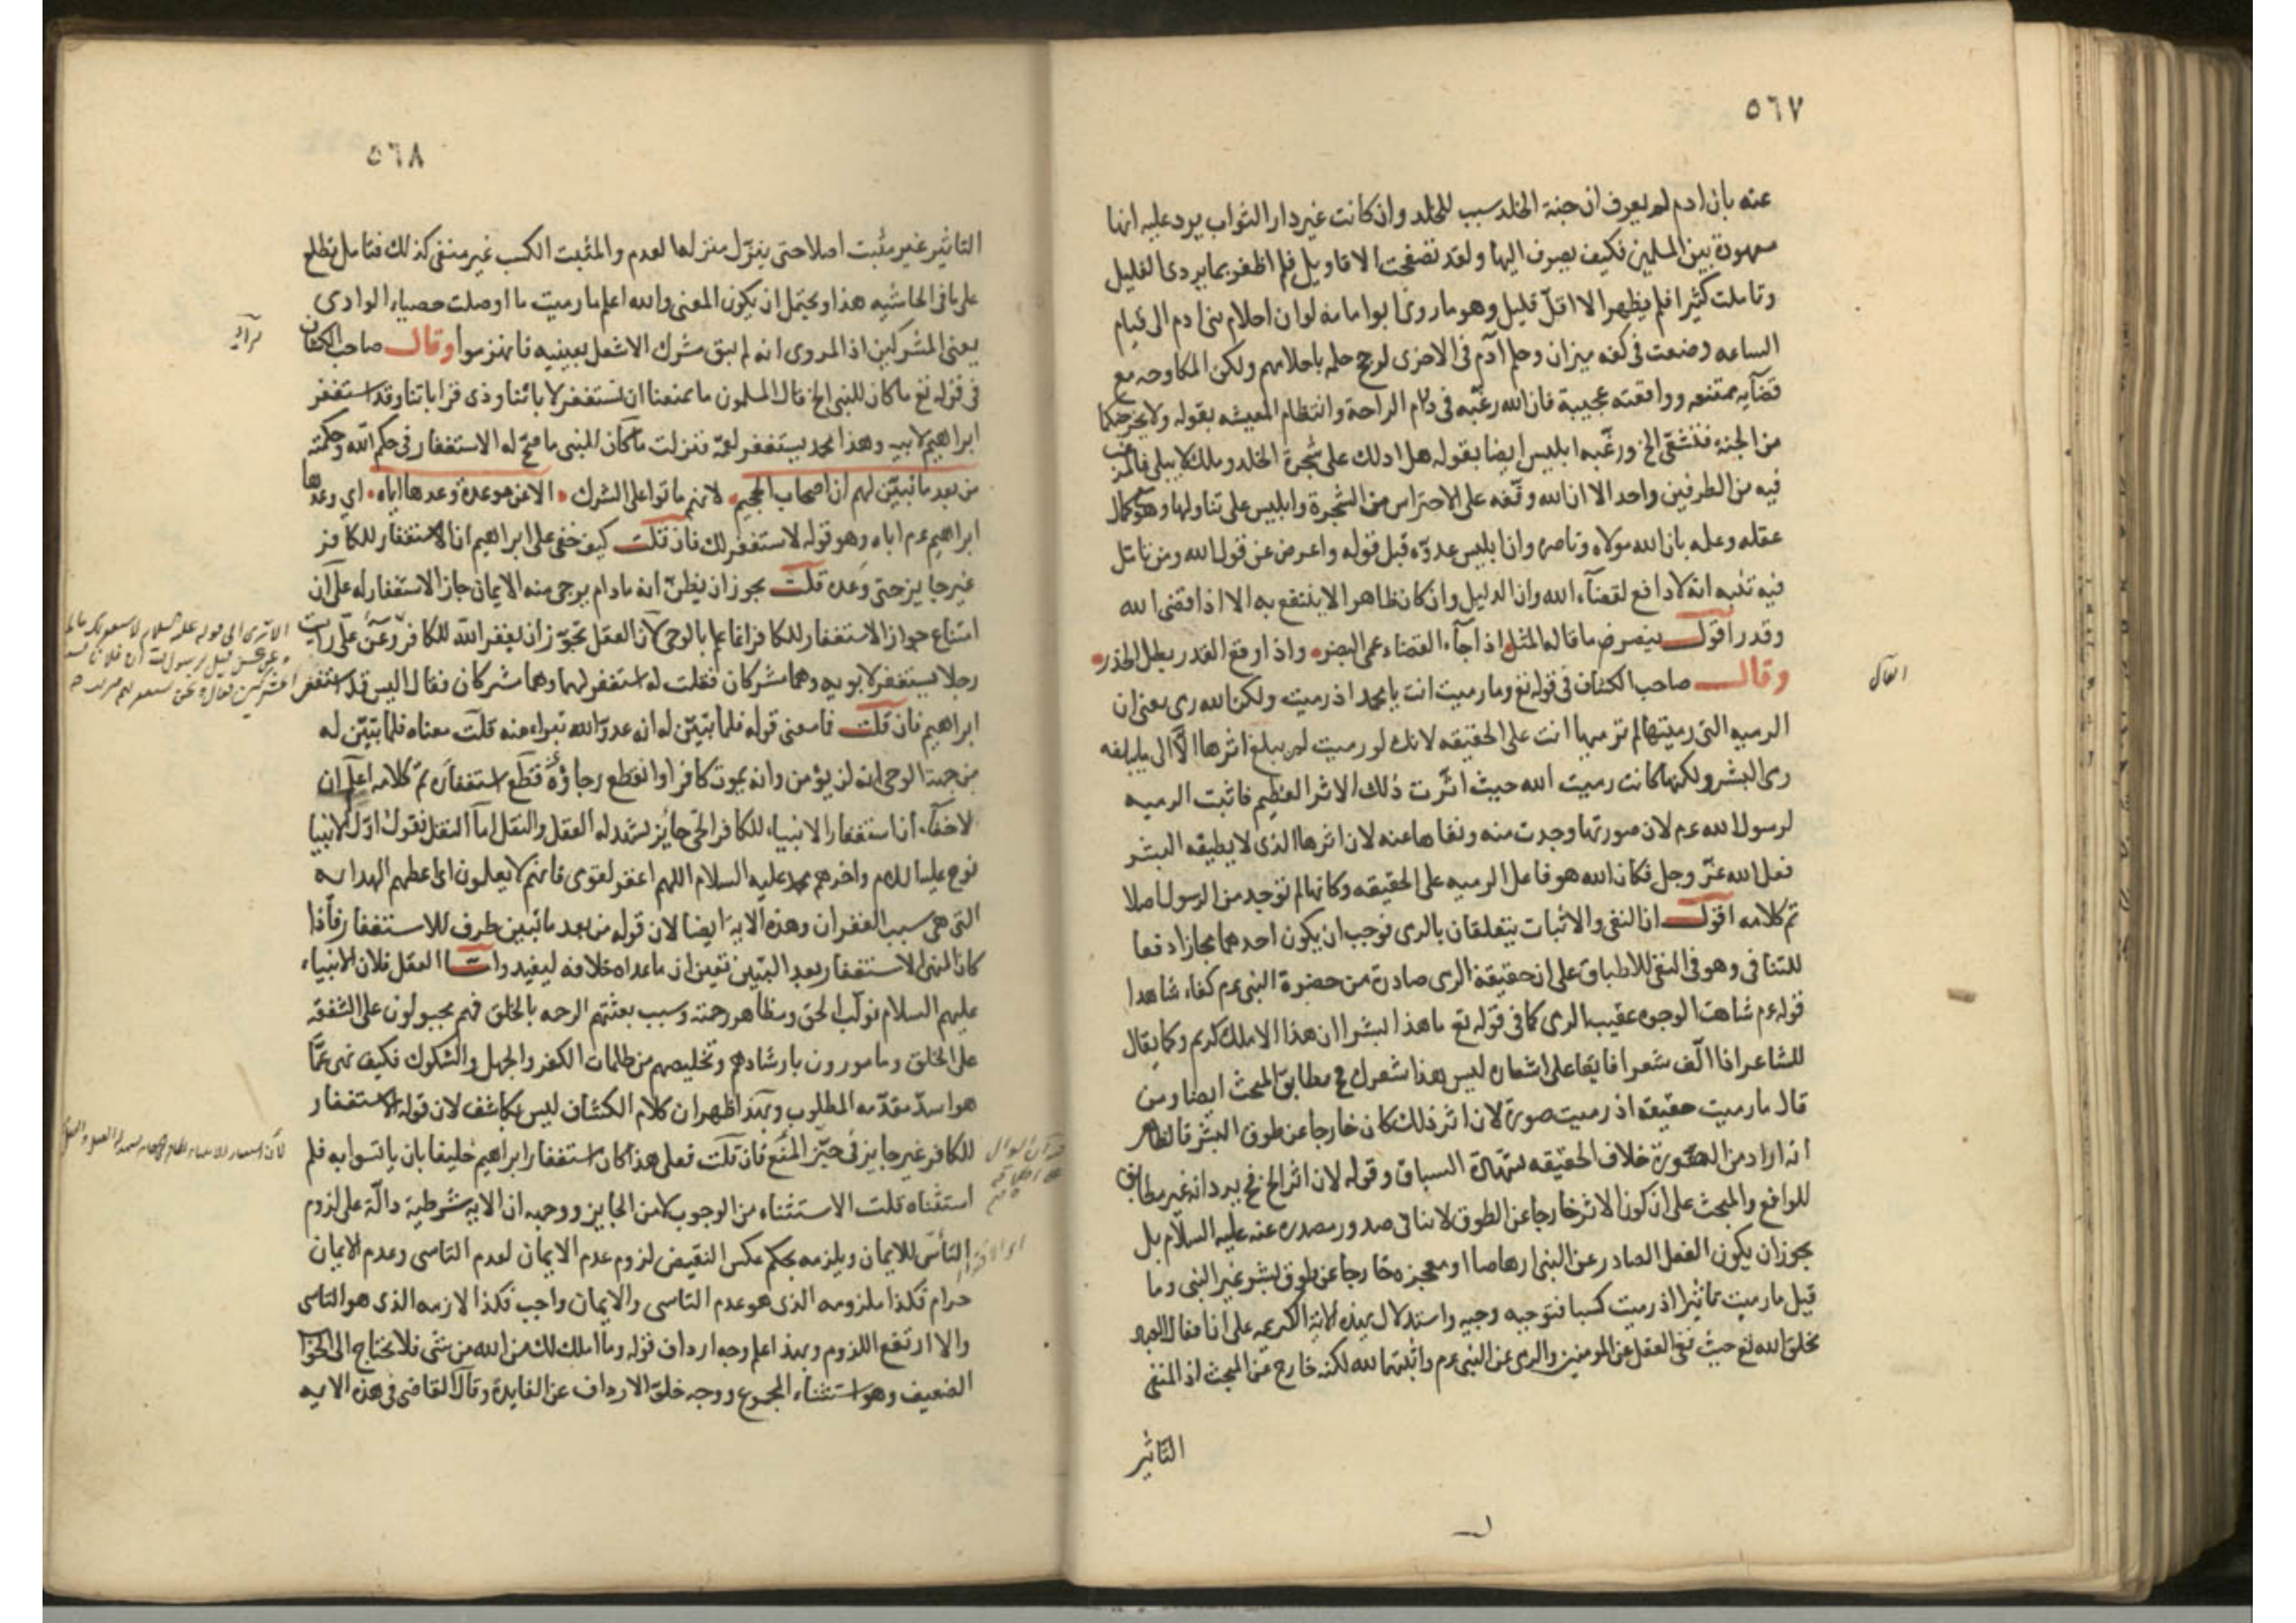 ٥٦٧
عنه بان ادم لم يعرف ان جنة الخلد سبب للخلد وان كانت غير دار الثواب يرد عليه انها
معهودة بين المسلمين فكيف يصرف اليها ولقد تصفحت الاقاويل فلم اظفر بما يردى الغليل
وتاملت كثيرا فلم يظهر الا اقل قليل وهو ما روى ابو امامه لو ان احلام بنى ادم الى قيام
الساعه وضعت فى كفه ميزان وحلم آدم فى الاخرى لرجح حلمه باحلامهم ولكن المكاوحه مع
قضآيه ممتنعه وواقعته عجيبة فان الله رغّبه فى دوام الراحة وانتظام المعيشه بقوله ولا يخرجنكما
من الجنه فتشقى الخ ورغّبه ابليس ايضا بقوله هل ادلك على شجرة الخلد وملك لا يبلى فالمرغب
فيه من الطرفين واحد الا ان الله وقّفه على الاحتراس من الشجرة وابليس على تناولها وهو مع كمال
عقله وعلمه بان الله مولاه وناصره وان ابليس عدوّه قبل قوله واعرض عن قول الله ومن تامل
فيه تنبه انه لا دافع لقضآء الله وان الدليل وان كان ظاهرا لا ينتفع به الا اذا قضى الله
وقدر اقول ينصرم ما قاله المثل اذا جآء القضاء عمى البصر واذا وقع القدر بطل الحذر
وقال صاحب الكشاف فى قوله تع وما رميت انت يا محمد اذ رميت ولكن الله رمى يعنى ان
الرميه التى رميتها لم ترمها انت على الحقيقه لانك لو رميت لم يبلغ اثرها الّا الى ما يبلغه
رمى البشر ولكنها كانت رميت الله حيث اثّرت ذلك الاثر العظيم فاثبت الرميه
لرسول الله عم لان صورتها وجدت منه ونفاها عنه لان اثرها الذى لا يطيقه البشر
فعل الله عزّ وجل فكان الله هو فاعل الرميه على الحقيقه وكانها لم توجد من الرسول اصلا
تم كلامه اقول ان النفى والاثبات يتعلقان بالرمى فوجب ان يكون احدهما مجازا دفعا
للتنافى وهو فى النفى للاطباق على ان حقيقة الرمى صادرة من حضرة النبى عم كفاء شاهدا
قوله عم شاهت الوجوه عقيب الرمى كما فى قوله تع ما هذا بشرا ان هذا الا ملك كريم وكما يقال
للشاعر اذا الّف شعرا فايقا على اشعاره ليس هذا شعرك فح مطابق المبحث ايضا ومن
قال ما رميت حقيقة اذ رميت صورة لان اثر ذلك كان خارجا عن طوق البشر فالظاهر
انه اراد من الصّورة خلاف الحقيقه بشهادة السباق وقوله لان اثر الخ فح يرد انه غير مطابق
للواقع والمبحث على ان كون الاثر خارجا عن الطوق لا ينافى صدور مصدره عنه عليه السلام بل
يجوز ان يكون الفعل الصادر عن النبى ارهاصا او معجزه خارجا عن طوق بشر غير النبى وما
قيل ما رميت تاثيرا اذ رميت كسبا فتوجيه وجيه واستدلال بهذه الآية الكريمه على ان افعال العبد
بخلق الله تع حيث نفى العقل عن المومنين والرمى عن النبى عم واثبتها لله لكنه خارج عن المبحث اذ المنفى
التاثير
٥٦٨
التاثير غير مثبت اصلا حتى ينزّل منزلها لعدم والمثبت الكسب غير منفى كذلك فتامل تطلع
على ما فى الحاشيه هذا ويحتمل ان يكون المعنى والله اعلم ما رميت ما اوصلت حصباء الوادى
يعنى المشركين اذ المروى انه لم يبق مشرك الا شغل بعينيه فانهزموا وقال صاحب الكشاف
فى قوله تع ما كان للنبى الخ قال المسلمون ما يمنعنا ان نستغفر لابائنا وذى قراباتنا وقد استغفر
ابراهيم لابيه وهذا محمد يستغفر لعمّه فنزلت ما كان للنبى ما صحّ له الاستغفار فى حكم الله وحكمته
من بعد ما تبيّن لهم ان اصحاب الجحيم لانهم ماتوا على الشرك الا عن موعدة وعدها اياه اى وعدها
ابراهيم عم اباه وهو قوله لاستغفرن لك فان قلت كيف خفى على ابراهيم ان الاستغفار للكافر
غير جايز حتى وعده قلت يجوز ان يظنّ انه مادام يرجى منه الايمان جاز الاستغفار له على ان
امتناع جواز الاستغفار للكافر انما علم بالوحى لان العقل يجوّز ان يغفر الله للكافر وعن علىّ رايت
رجلا يستغفر لابويه وهما مشركان فقلت له استغفر لهما وهما مشركان فقال اليس قد استغفر
ابراهيم فان قلت فما معنى قوله فلما تبيّن له انه عدوّ الله تبراء منه قلت معناه فلما تبيّن له
من جهة الوحى انه لن يؤمن وانه يموت كافرا وانقطع رجاؤه قطع استغفاره تمّ كلامه اعلم ان
لاخفآء ان استغفار الانبياء للكافر الحىّ جائز يشهد له العقل والنقل امآ النقل فقول اوّل الانبيا
نوح عليه السلام واخرهم محمد عليه السلام اللهم اغفر لقومى فانهم لا يعلمون اى اعطهم الهدايه
التى هى سبب الغفران وهذه الاية ايضا لان قوله من بعد ما تبين طرف للاستغفار فاذا
كان النهى الاستغفار بعد التبيّن تعين ان ما عداه خلافه ليفيد وامّا العقل فلان الانبياء
عليهم السلام نوّاب الحق ومظاهر رحمته وسبب بعثتهم الرحمه بالخلق فهم مجبولون على الشفقه
على الخلق ومامورون بارشادهم وتخليصهم من ظلمات الكفر والجهل والشكوك فكيف نهى عمّا
هو اسدّ مقدّمه المطلوب وبهذ اظهر ان كلام الكشاف ليس بكاشف لان قوله الاستغفار
للكافر غير جايز فى حيّز المنع فان قلت فعلى هذا كان استغفار ابراهيم خليقا بان ياتسوا به فلم
استثناه قلت الاستثناء من الوجوب لا من الجايز ووجهه ان الاية شرطية دالّة على لزوم
التأسّى للايمان ويلزمه بحكم عكس النقيض لزوم عدم الايمان لعدم التاسى وعدم الايمان
حرام فكذا ملزومه الذى هو عدم التاسى والايمان واجب فكذا لازمه الذى هو التاسى
والا ارتفع اللزوم وبهذ اعلم وجه ارداف قوله وما املك لك من الله من شى فلا يحتاج الى الجواب
الضعيف وهو استثناء المجموع ووجه خلق الارداف عن الفايدة وقال القاضى فى هذه الايه